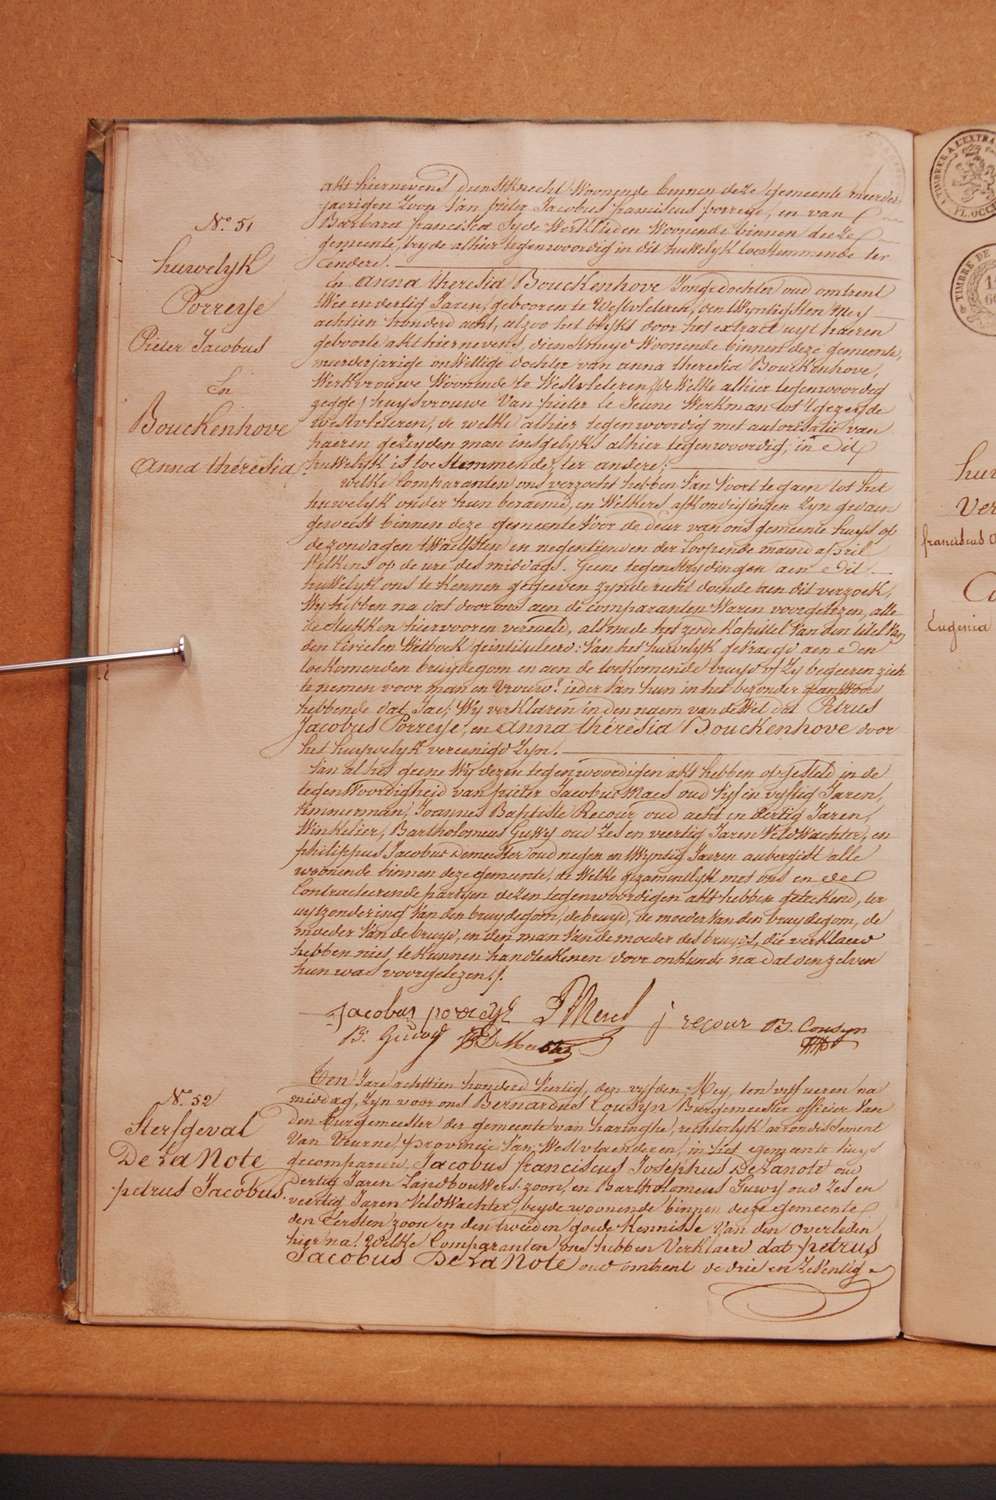 N.º 51
huwelijk
Porreÿe
Pieter Jacobus
En
Bouckenhove
Anna thérésia
akt hiernevens dienstknecht Woonende binnen deze gemeente meerder
jaerigen zoon van pieter Jacobus franciscus porreye, en van
Barbara francisca Werklieden Woonende binnen deeze
gemeente, beyde alhier tegenwoordig in dit huwelyk toestemmende ter
eendere.
En anna thérésia Bouckenhove Jonge dochter oud omtrent
twee en dertig Jaren, gebooren te Westvleteren, den twyntigsten Mey
achtien honderd acht, alzoo het blykt door het extract uyt haeren
geboorte akt hiernevens, dienstmeyd Woonende binnen deze gemeente,
meerderjarige onWettige dochter van anna theresia Bouckenhove,
Werkvrouwe Woonende te Westvleteren de Welke alhier tegenwoordig
gezegde huysvrouwe Van pieter le Jeune Werkman tot gezegde
Westvleteren, de welke alhier tegenwoordig met autorisatie van
haeren gezeyden man insgelyks alhier tegenwoordig, in dit
huwelyk is toe stemmende, ter andere;
Welke Comparanten ons verzocht hebben van voort te gaen tot het
huwelyk onder hun beraemd, en Welkers afkondigingen Zyn gedaen
geweest binnen deze gemeente voor de deur van ons gemeente huys op
de zondagen twaelfsten en negentienden der loopende maand april
telkens op de ure des middags. Geene tegenstrydingen aen dit
huwelyk ons te kennen gegeeven zynde recht doende aen dit verzoek,
Wy hebben na dat door ons aen de comparanten Waren voorgelezen, alle
de stukken hiervooren vermeld, alsmede het zesde kapittel Van den titel Van
den Civielen Wetboek geintituleerd: Van het huwelyk gevraegd aen den
toekomenden bruydegom en aen de toekomende bruyd of zy begeeren zich
te nemen voor man en Vrouw? ieder van hun in het bezonder geantwoord
hebbende dat Jae; Wy verklaren in den naem van de Wet dat Petrus
Jacobus Porreÿe, en anna thérésia Bouckenhove door
het huywelyk vereenigd Zyn.
Van al het geene Wy dezen tegenwoordigen akt hebben opgesteld in de
tegenwoordigheid van pieter Jacobus Maes oud vyf en vyftig Jaren,
timmerman, Joannes Baptiste Recour, oud acht en dertig Jaren,
Winkelier, Bartholomeus Guwy oud zes en veertig Jaren VeldWachter, en
philippus Jacobus Demeester oud negen en twyntig Jaeren aubergist alle
woonende binnen deze gemeente, de Welke gezamentlyk met ons en de
Contracteerende partyen dezen tegenwoordigen akt hebben geteekend, ter
uytzondering van den bruydegom, de bruyd, de moeder van den bruydegom, de
moeder van de bruyd, en den man van de moeder des bruyds, die verklaerd
hebben niet te kunnen handteekenen door onkunde na dat den zelven
hun was voorgelezen./.
Jacobus porreye P Maes j recour B. Cousyn
B: Guwy
N.º 52
Sterfgeval
De La Note
petrus Jacobus
Den Jare achttien honderd Veertig, den vyfden Mey, ten vyf ueren na
middag, Zyn voor ons Bernardus Cousyn Burgemeester officier van
den burgemeester der gemeente van haringhe, rechterlyk arrondissement
Van Veurne, provincie Van Westvlaenderen, in het gemeente huys
gecompareerd Jacobus franciscus Josephus De Lanote oud
dertig Jaren Landbouwers zoon, en Bartholomeus Guwy oud Zes en
veertig Jaren VeldWachter, beyde woonende binnen deeze gemeente
den Eersten zoon en den tweeden goede Kennisse Van den overleden
hier na! Welke Comparanten ons hebben Verklaerd dat petrus
Jacobus De La Note oud omtrent de drie en Zeventig
TIMBRE A L'EXTRA
FL. OCC
TIMBRE DE
huw
Ver
franciscus
Eugenia